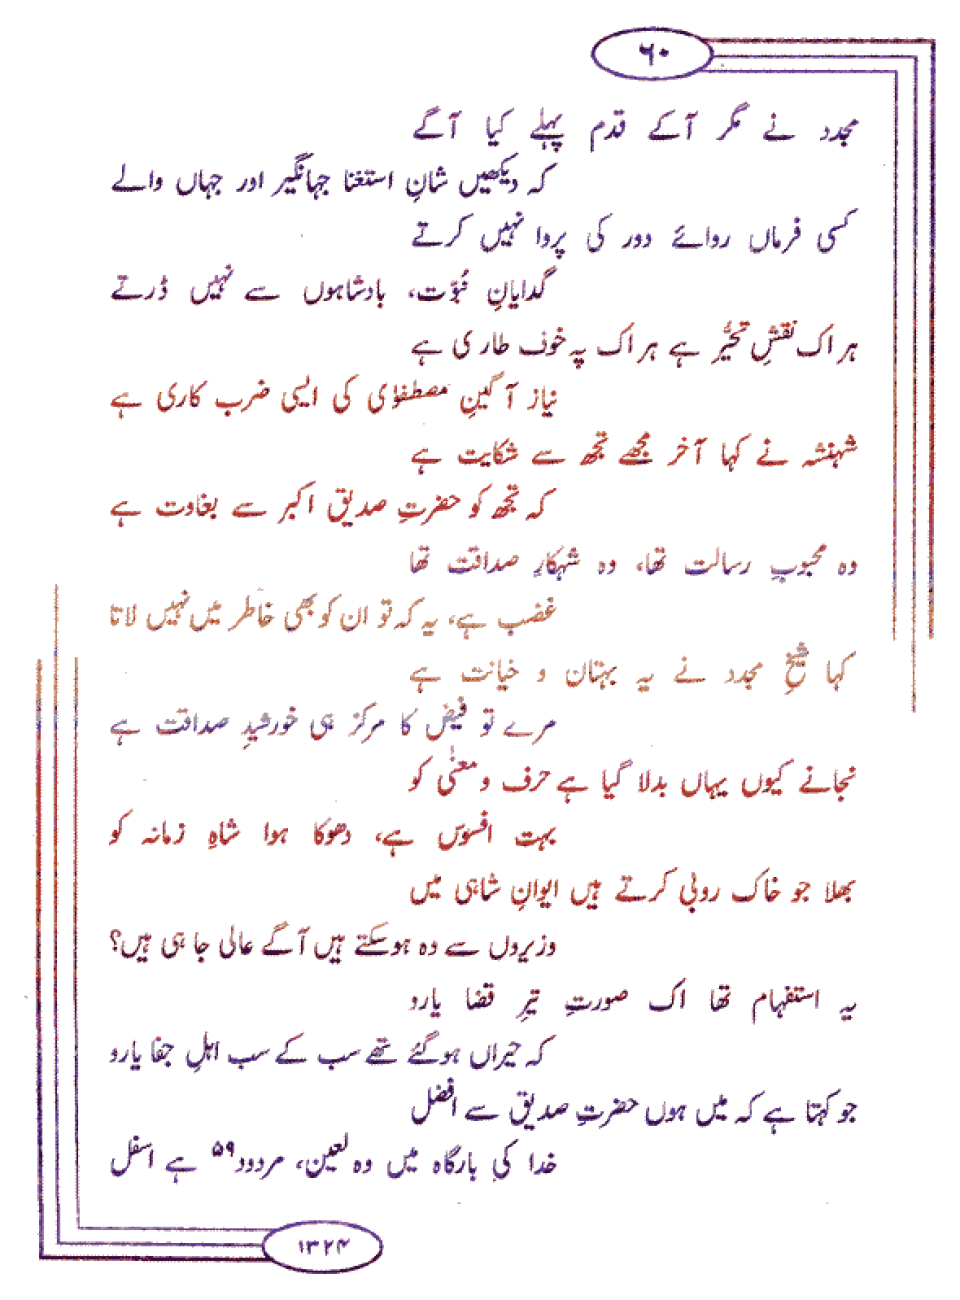 ۶۰
مجدد نے مگر آکے قدم پہلے کیا آگے
کہ دیکھیں شانِ استغنا جہانگیر اور جہاں والے
کسی فرماں روائے دور کی پروا نہیں کرتے
گدایانِ نبوّت، بادشاہوں سے نہیں ڈرتے
ہر اک نقشِ تحیّر ہے ہر اک پہ خوف طاری ہے
نیاز آگینِ مصطفوٰی کی ایسی ضرب کاری ہے
شہنشہ نے کہا آخر مجھے تجھ سے شکایت ہے
کہ تجھ کو حضرتِ صدیق اکبر سے بغاوت ہے
وہ محبوبِ رسالت تھا، وہ شہکارِ صداقت تھا
غضب ہے، یہ کہ تو ان کو بھی خاطر میں نہیں لاتا
کہا شیخِ مجدد نے یہ بہتان و خیانت ہے
مرے تو فیض کا مرکز ہی خورشیدِ صداقت ہے
نجانے کیوں یہاں بدلا گیا ہے حرف و معنٰی کو
بہت افسوس ہے، دھوکا ہوا شاہِ زمانہ کو
بھلا جو خاک روبی کرتے ہیں ایوانِ شاہی میں
وزیروں سے وہ ہوسکتے ہیں آگے عالی جا ہی ہیں؟
یہ استفہام تھا اک صورتِ تیرِ قضا یارو
کہ حیراں ہوگئے تھے سب کے سب اہلِ جفا یارو
جو کہتا ہے کہ میں ہوں حضرتِ صدیق سے افضل
خدا کی بارگاہ میں وہ لعین، مردود۵۹ ہے اسفل
۱۳۲۴